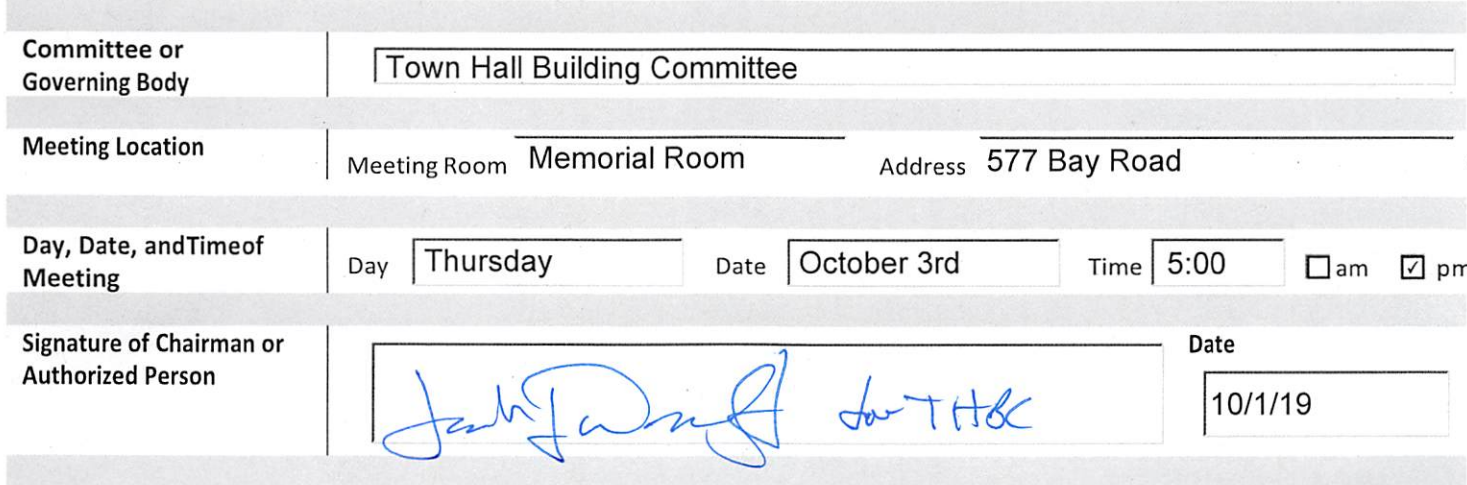 Committee or
Governing Body
Town Hall Building Committee
Meeting Location
Meeting Room Memorial Room Address 577 Bay Road
Day, Date, andTimeof
Meeting
Day Thursday Date October 3rd Time 5:00 am pm
Signature of Chairman or
Authorized Person
for THBC
Date
10/1/19